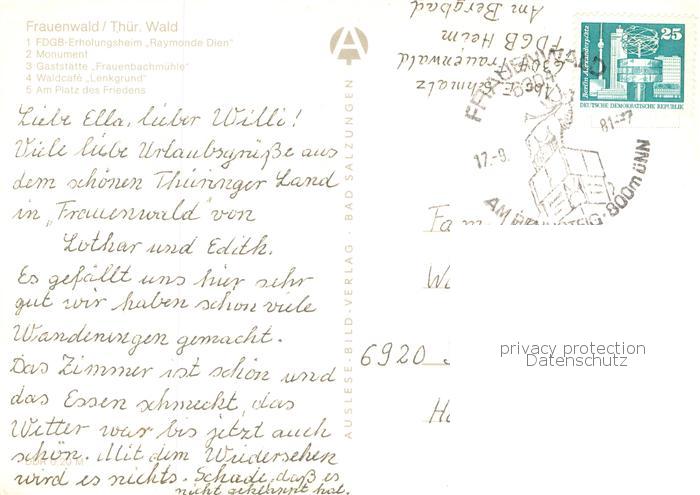 Frauenwald / Thür. Wald
1 FDGB-Erholungsheim „Raymonde Dien"
2 Monument
3 Gaststätte „Frauenbachmühle"
4 Waldcafé „Lenkgrund"
5 Am Platz des Friedens
Liebe Ella, lieber Willi!
Viele liebe Urlaubsgrüße aus
dem schönen Thüringer Land
in „Frauenwald" von
Lothar und Edith.
Es gefällt uns hier sehr
gut wir haben schon viele
Wanderungen gemacht.
Das Zimmer ist schön und
das Essen schmeckt, das
Wetter war bis jetzt auch
schön. Mit dem Wiedersehen
wird es nichts. Schade, daß es
nicht geklappt hat.
AUSLESE-BILD-VERLAG · BAD SALZUNGEN
Schmalz
6304 Frauenwald
FDGB Heim
Am Bergbad
25
Berlin, Alexanderplatz
DEUTSCHE DEMOKRATISCHE REPUBLIK
FRAUENWALD
6304
17.-9.
81-
AM RENNSTEIG · 800m ÜNN
Fa
6920
privacy protection
Datenschutz